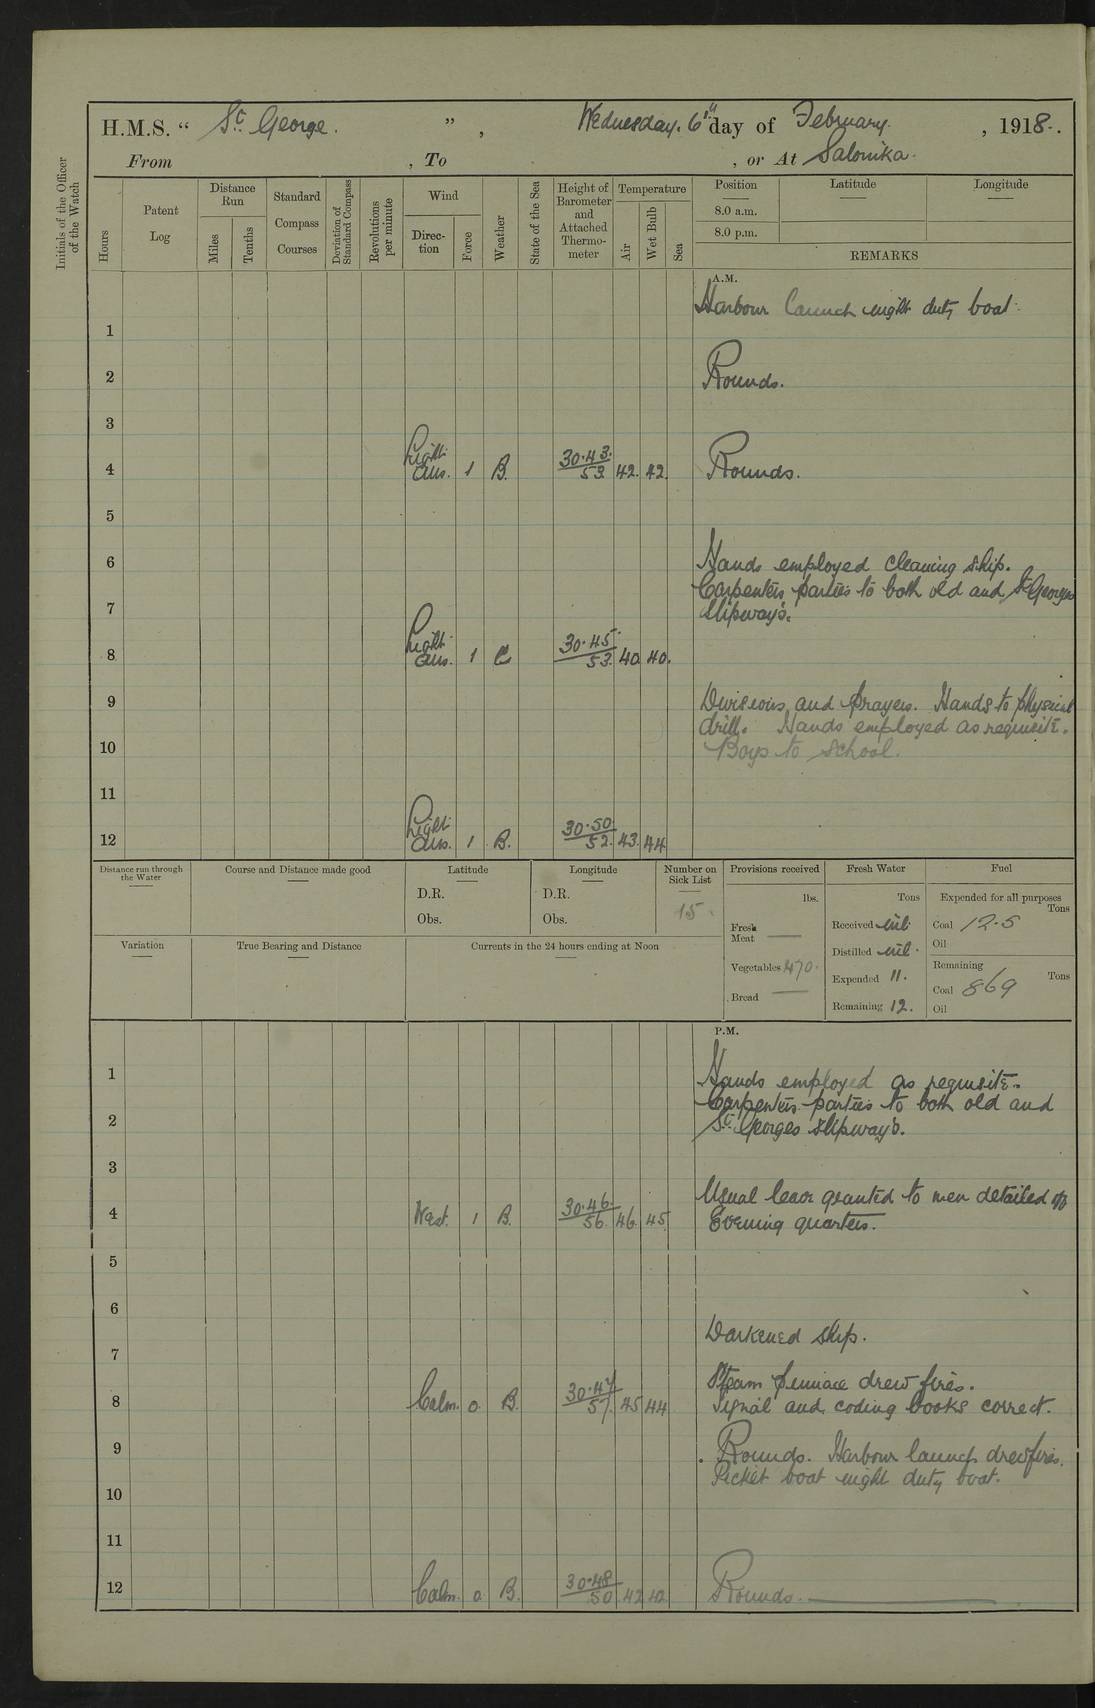 H.M.S. " St George. ", Wednesday. 6th day of February. , 1918.
From , To , or At Salonika.
Initials of the Officer of the Watch
Hours
Patent Log
Distance Run
Miles
Tenths
Standard Compass Courses
Deviation of Standard Compass
Revolutions per minute
Wind
Direction
Force
Weather
State of the Sea
Height of Barometer and Attached Thermometer
Temperature
Air
Wet Bulb
Sea
Position
Latitude
Longitude
8.0 a.m.
8.0 p.m.
REMARKS
A.M.
Harbour launch night duty boat.
1
2 Rounds.
3
4 Light airs. 1 B. 30.43. 53. 42. 42. Rounds.
5
6 Hands employed cleaning ship.
Carpenters parties to both old and St Georges
7 slipways.
8 Light airs. 1 C 30.45. 53. 40. 40.
9 Divisions and prayers. Hands to physical
drill. Hands employed as requisite.
10 Boys to school.
11
12 Light airs. 1 B. 30.50. 52. 43. 44.
Distance run through the Water
Course and Distance made good
Latitude
D.R.
Obs.
Longitude
D.R.
Obs.
Number on Sick List
15.
Provisions received
lbs.
Fresh Meat
Vegetables 470.
Bread
Fresh Water
Tons
Received nil.
Distilled nil.
Expended 11.
Remaining 12.
Fuel
Expended for all purposes
Tons
Coal 12.5
Oil
Remaining
Tons
Coal 869
Oil
Variation
True Bearing and Distance
Currents in the 24 hours ending at Noon
P.M.
1 Hands employed as requisite.
Carpenters parties to both old and
2 St Georges slipways.
3
Usual leave granted to men detailed
4 West. 1 B. 30.46. 56. 46. 45. Evening quarters.
5
6
Darkened ship.
7
Steam pinnace drew fires.
8 Calm. 0. B. 30.47 57. 45 44 Signal and coding books correct.
9 Rounds. Harbour launch drew fires.
Picket boat night duty boat.
10
11
12 Calm. 0. B. 30.48 50. 42 42. Rounds.